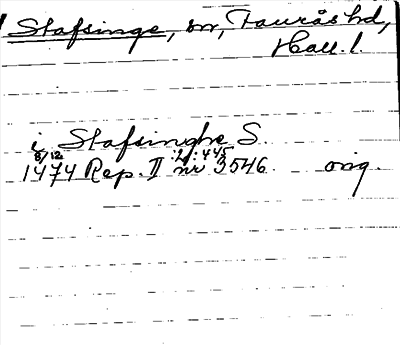 Stafsinge, sn, Faurås hd,
Hall. l.
i Stafsinghe S.
8/12 :2, :445
1474 Rep. II nr 3546. orig.